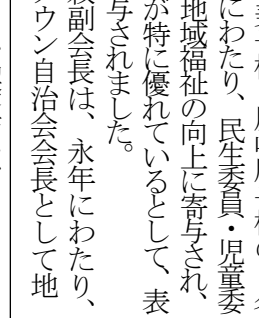 にわたり、民生委員・児童委
地域福祉の向上に寄与され、
が特に優れているとして、表
与されました。
副会長は、永年にわたり、
タウン自治会会長として地